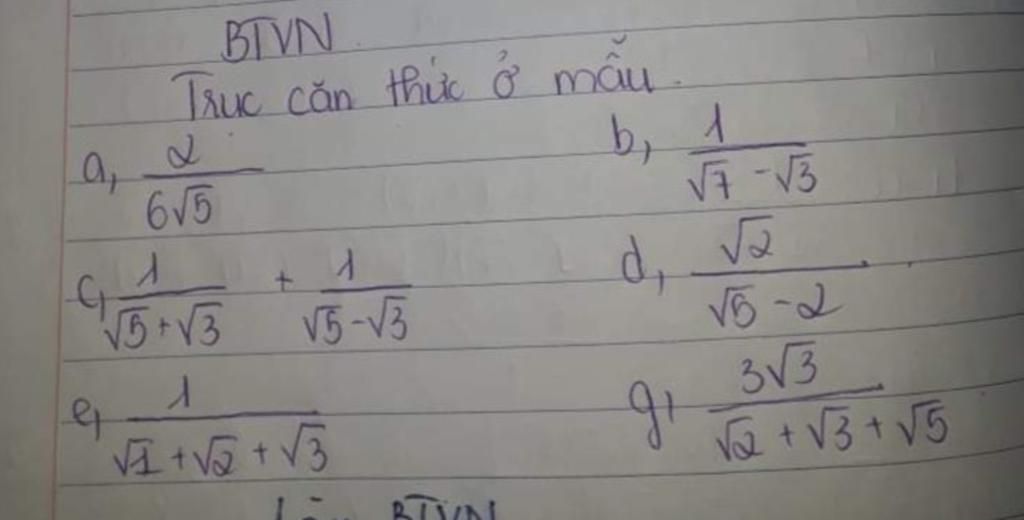 BTVN
Trục căn thức ở mẫu.
a, 2/(6√5)
b, 1/(√7 - √3)
c, 1/(√5 + √3) + 1/(√5 - √3)
d, √2/(√5 - 2)
e, 1/(√1 + √2 + √3)
g, 3√3/(√2 + √3 + √5)
BTVN